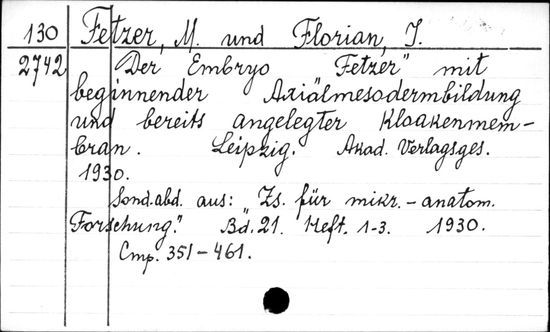 130 Fetzer, M. und Florian, J.
2742 Der Embryo "Fetzer" mit
beginnender Axialmesodermbildung
und bereits angelegter Kloakenmem-
bran. Leipzig. Akad. Verlagsges.
1930.
Sond.abd. aus: "Zs. für mikr.-anatom.
Forschung." Bd. 21. Heft. 1-3. 1930.
Стр. 351-461.